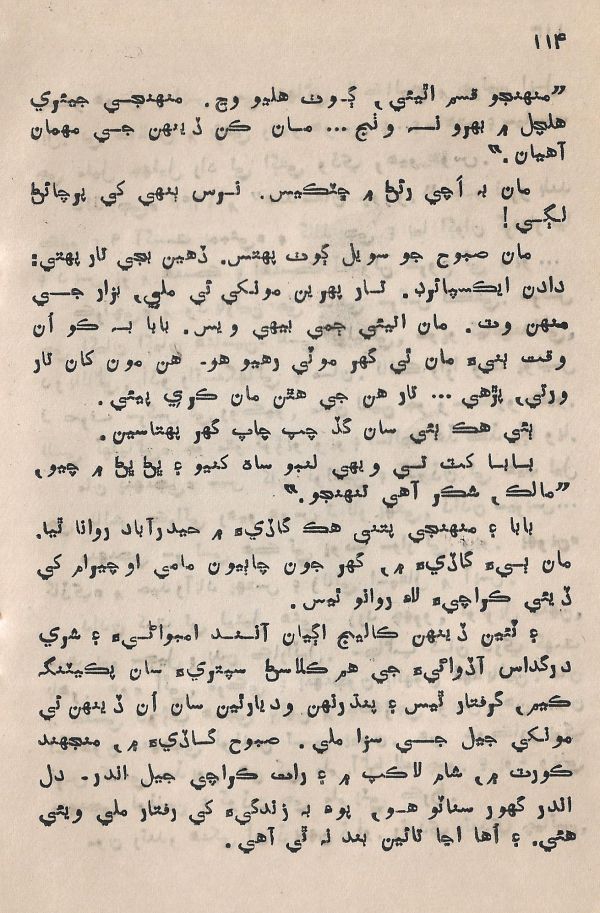 ۱۱۴
”منهنجو قسم اٿيئي، ڳوٺ هليو وڃ. منهنجي جيئري
هلچل ۾ بهرو نہ وٺج ... مان ڪن ڏينهن جي مهمان
آهيان.“
مان بہ اُچي رئڻ ۾ ڇٽڪيس. نرس ٻنهي کي پرچائڻ
لڳي!
مان صبوح جو سويل ڳوٺ پهتس. ڏهين بجي تار پهتي:
دادن ايڪسپائرڊ. تار پهرين مونکي ئي ملي، بزار جي
منهن وٽ. مان اتيئي ڄمي بيهي ويس. بابا بہ ڪو اُن
وقت ٻنيءَ مان ئي گهر موٽي رهيو هو. هن مون کان تار
ورتي، پڙهي ... تار هن جي هٿن مان ڪري پيئي.
ٻئي هڪ ٻئي سان گڏ چپ چاپ گهر پهتاسين.
بابا کٽ تي ويهي لنبو ساه کنيو ۽ ڀڻ ڀڻ ۾ چيو،
”مالڪ، شڪر آهي تنهنجو.“
بابا ۽ منهنجي پتني هڪ گاڏيءَ ۾ حيدرآباد روانا ٿيا.
مان ٻيءَ گاڏيءَ ۾، گهر جون چاٻيون مامي اوچيرام کي
ڏيئي ڪراچيءَ لاءِ روانو ٿيس.
۽ ٽئين ڏينهن ڪاليج اڳيان آنند امبواڻيءَ ۽ شري
درگداس آڏواڻيءَ جي هم ڪلاسڻ سپتريءَ سان پڪيٽنگ
ڪيم، گرفتار ٿيس ۽ پنڌرنهن وديارٿين سان اُن ڏينهن ئي
مونکي جيل جي سزا ملي. صبوح گاڏيءَ ۾، منجهند
ڪورٽ ۾، شام لاڪپ ۾ ۽ رات ڪراچي جيل اندر. دل
اندر گهور سناٽو هو، پوءِ بہ زندگيءَ کي رفتار ملي ويئي
هئي. ۽ اُها اڃا تائين بند نہ ٿي آهي.